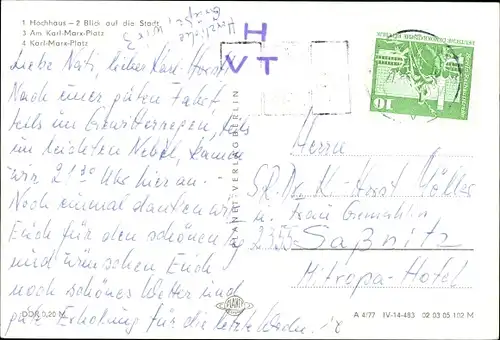 1 Hochhaus – 2 Blick auf die Stadt
3 Am Karl-Marx-Platz
4 Karl-Marx-Platz
Herzliche
Grüße
H
VT
10
Liebe lieber Karl-Horst
Nach einer guten Fahrt,
teils im Gewitterregen, teils
im leichten Nebel, kamen
wir 21³⁰ Uhr hier an.
Noch einmal danken wir
Euch für den schönen
und wünschen Euch
noch schönes Wetter und
gute Erholung für die letzte Woche.
PLANET-VERLAG BERLIN
PLANET
Herrn
SR. Dr. K.-Horst Möller
u. Frau Gemahlin
2355 Saßnitz
Mitropa-Hotel
DDR 0,20 M
A 4/77 IV-14-483 02 03 05 102 M